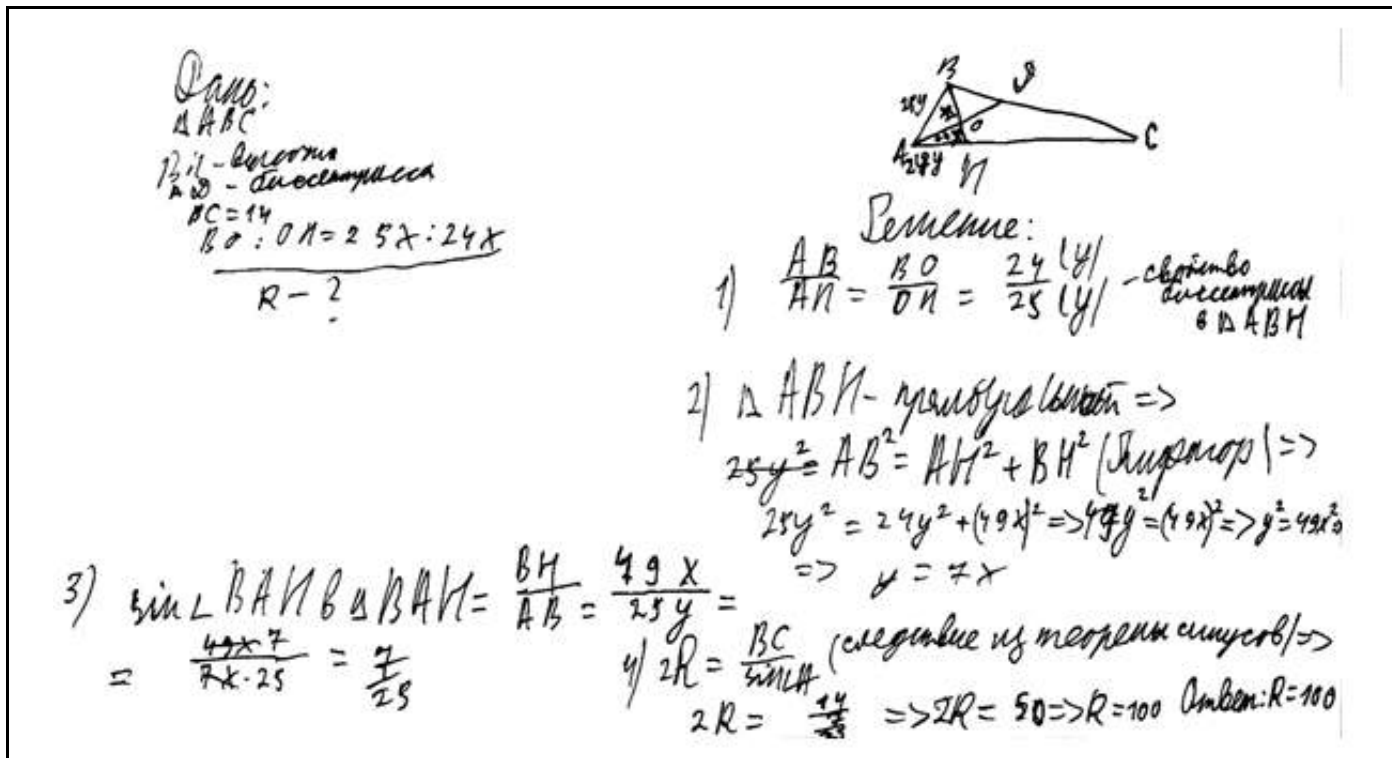 Дано:
△ABC
BH - высота
AD - биссектрисса
BC = 14
BO : OH = 25x : 24x
R - ?
B
D
25y
O
A
24y
H
C
Решение:
1) AB/AH = BO/OH = 24(y)/25(y) - свойство биссектрисы в △ABH
2) △ABH - прямоугольный =>
25y² = AB² = AH² + BH² (Пифагор) =>
25y² = 24y² + (49x)² => 49y² = (49x)² => y² = 49x² =>
=> y = 7x
3) sin∠BAH в △BAH = BH/AB = 49x/25y =
= 49x·7/7x·25 = 7/25
4) 2R = BC/sin∠A (следствие из теоремы синусов) =>
2R = 14 => 2R = 50 => R = 100 Ответ: R = 100